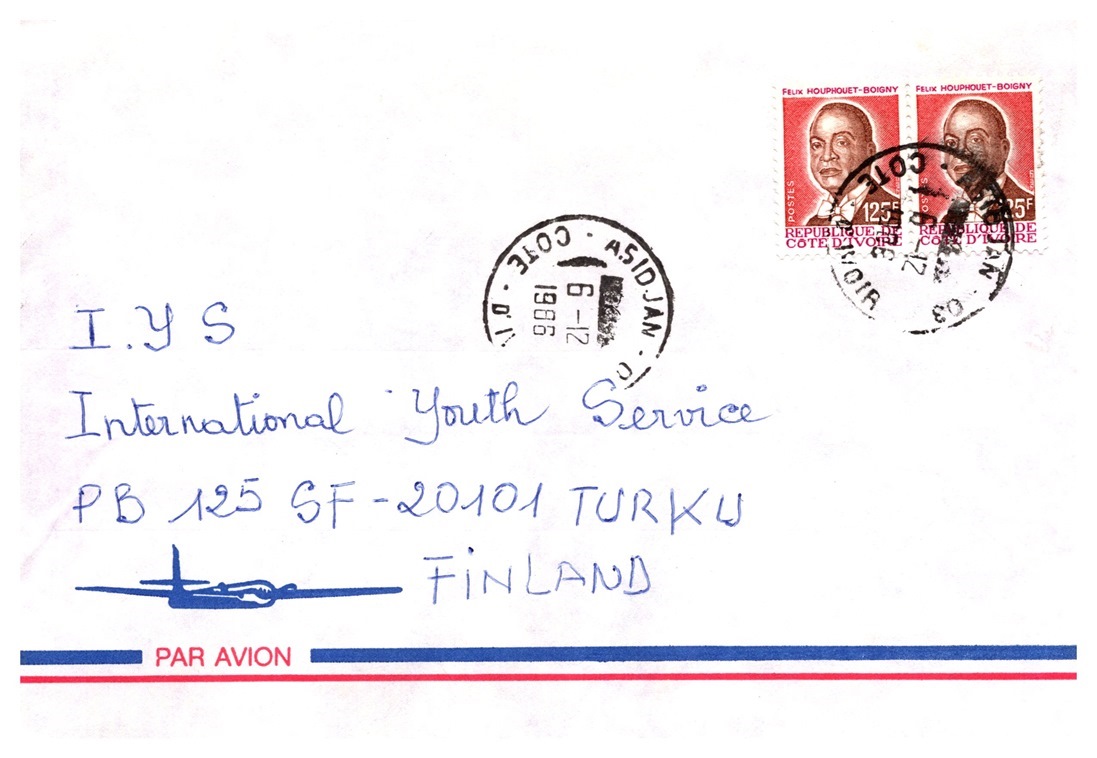 FELIX HOUPHOUET-BOIGNY FELIX HOUPHOUET-BOIGNY
POSTES
125F 25F
REPUBLIQUE DE REPUBLIQUE DE
CÔTE D'IVOIRE CÔTE D'IVOIRE
A.SIDJAN · 03
COTE D'IVOIR
6-12
A.SIDJAN ·
COTE · D'I
6-12
1986
I.Y S
International Youth Service
PB 125 SF-20101 TURKU
FiNLAND
PAR AVION